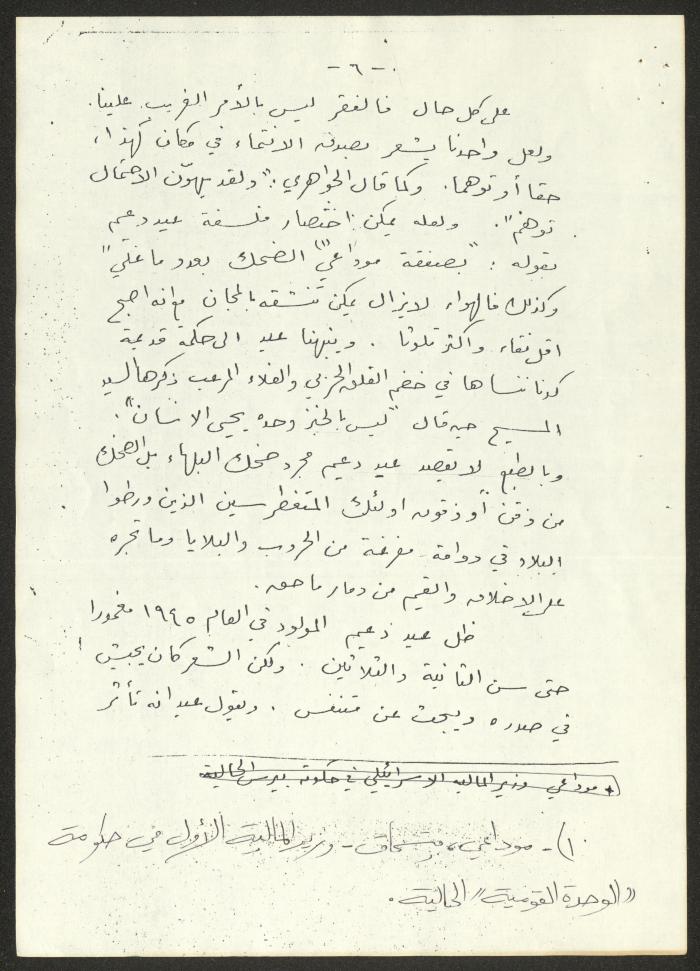 - ٦ -
على كل حال فالفقر ليس بالأمر الغريب علينا.
ولعل واحدنا يشعر بصدق الانتماء في مكان كهذا،
حقا أو توهما. وكما قال الجواهري: "ولقد يهوّن الاحتمال
توهّم". ولعله يمكن اختصار فلسفة عيد دعيم
بقوله: "بصفقة موداعي(١) الضحك بعدو ما غلي"
وكذلك فالهواء لا يزال يمكن تنشقه بالمجان مع انه اصبح
اقل نقاء واكثر تلوثا. وينبهنا عيد الى حكمة قديمة
كدنا ننساها في خضم القلق الحزبي والغلاء المرعب ذكرها السيد
المسيح حين قال "ليس بالخبز وحده يحيى الانسان".
وبالطبع لا يقصد عيد دعيم مجرد ضحك البلهاء بل الضحك
من ذقن أو ذقون اولئك المتغطرسين الذين ورطوا
البلاد في دوامة مفرغة من الحروب والبلايا وما تجره
على الاخلاق والقيم من دمار ماحق.
ظل عيد دعيم المولود في العام ١٩٤٥ مغمورا
حتى سن الثانية والثلاثين. ولكن الشعر كان يجيش
في صدره ويبحث عن متنفس. ويقول عيد انه تأثر
* موداعي وزير المالية الاسرائيلي في حكومة بيرس الحالية
١) - موداعي، يتسحاق - وزير المالية الأول في حكومة
"الوحدة القومية" الحالية.